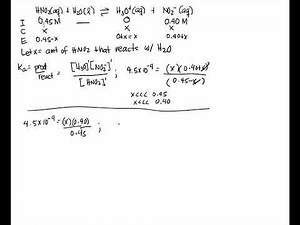 HNO₂(aq) + H₂O(l) ⇌ H₃O⁺(aq) + NO₂⁻(aq)
I 0.45M — 0 0.40 M
C x
E 0.45-x 0+x=x 0.40+x
Let x = amt of HNO₂ that reacts w/ H₂O
Ka = prod/react = [H₃O⁺]¹[NO₂⁻]¹/[HNO₂]¹ ; 4.5x10⁻⁴ = (x)(0.40+x)/(0.45-x)
x<<< 0.45
x<<< 0.40
4.5x10⁻⁴ = (x)(0.40)/0.45 ;